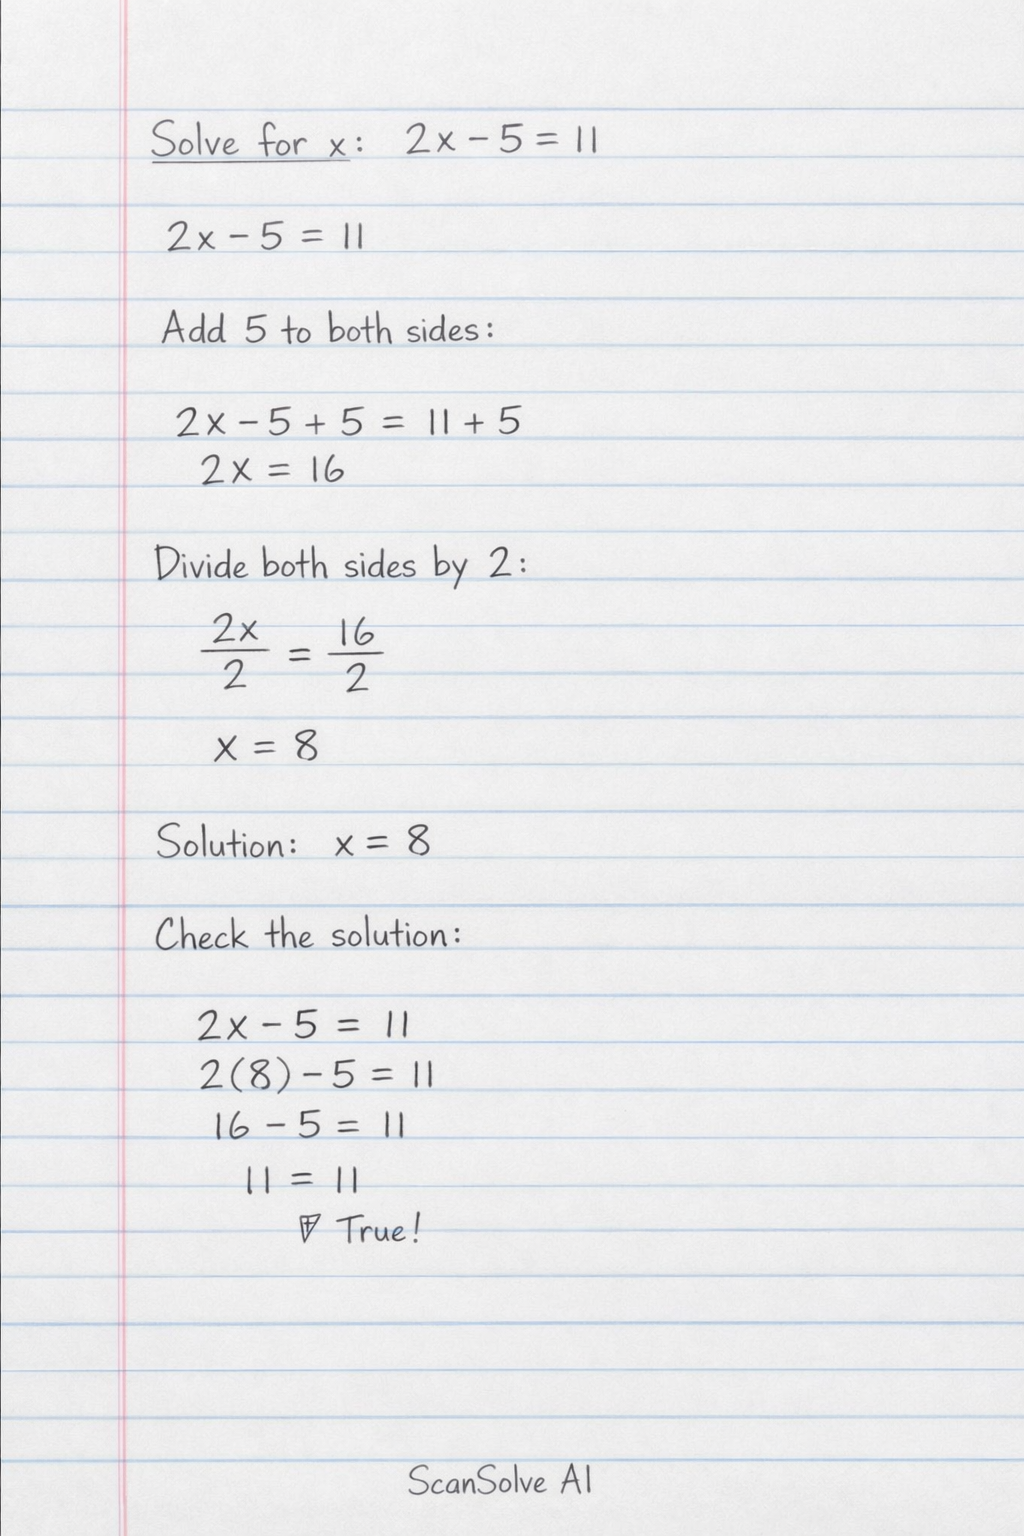 Solve for x: 2x - 5 = 11
2x - 5 = 11
Add 5 to both sides:
2x - 5 + 5 = 11 + 5
2x = 16
Divide both sides by 2:
2x/2 = 16/2
x = 8
Solution: x = 8
Check the solution:
2x - 5 = 11
2(8) - 5 = 11
16 - 5 = 11
11 = 11
True!
ScanSolve AI